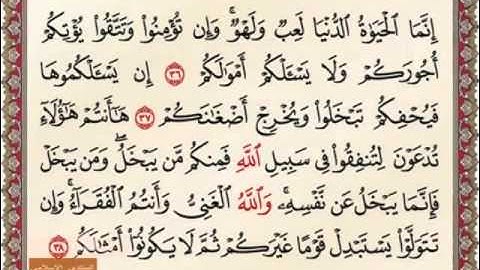 إِنَّمَا الْحَيَوٰةُ الدُّنْيَا لَعِبٌ وَلَهْوٌ ۚ وَإِن تُؤْمِنُوا۟ وَتَتَّقُوا۟ يُؤْتِكُمْ
أُجُورَكُمْ وَلَا يَسْـَٔلْكُمْ أَمْوَٰلَكُمْ ٣٦ إِن يَسْـَٔلْكُمُوهَا
فَيُحْفِكُمْ تَبْخَلُوا۟ وَيُخْرِجْ أَضْغَـٰنَكُمْ ٣٧ هَـٰٓأَنتُمْ هَـٰٓؤُلَآءِ
تُدْعَوْنَ لِتُنفِقُوا۟ فِى سَبِيلِ اللَّهِ فَمِنكُم مَّن يَبْخَلُ ۖ وَمَن يَبْخَلْ
فَإِنَّمَا يَبْخَلُ عَن نَّفْسِهِۦ ۚ وَاللَّهُ الْغَنِىُّ وَأَنتُمُ الْفُقَرَآءُ ۚ وَإِن
تَتَوَلَّوْا۟ يَسْتَبْدِلْ قَوْمًا غَيْرَكُمْ ثُمَّ لَا يَكُونُوٓا۟ أَمْثَـٰلَكُم ٣٨